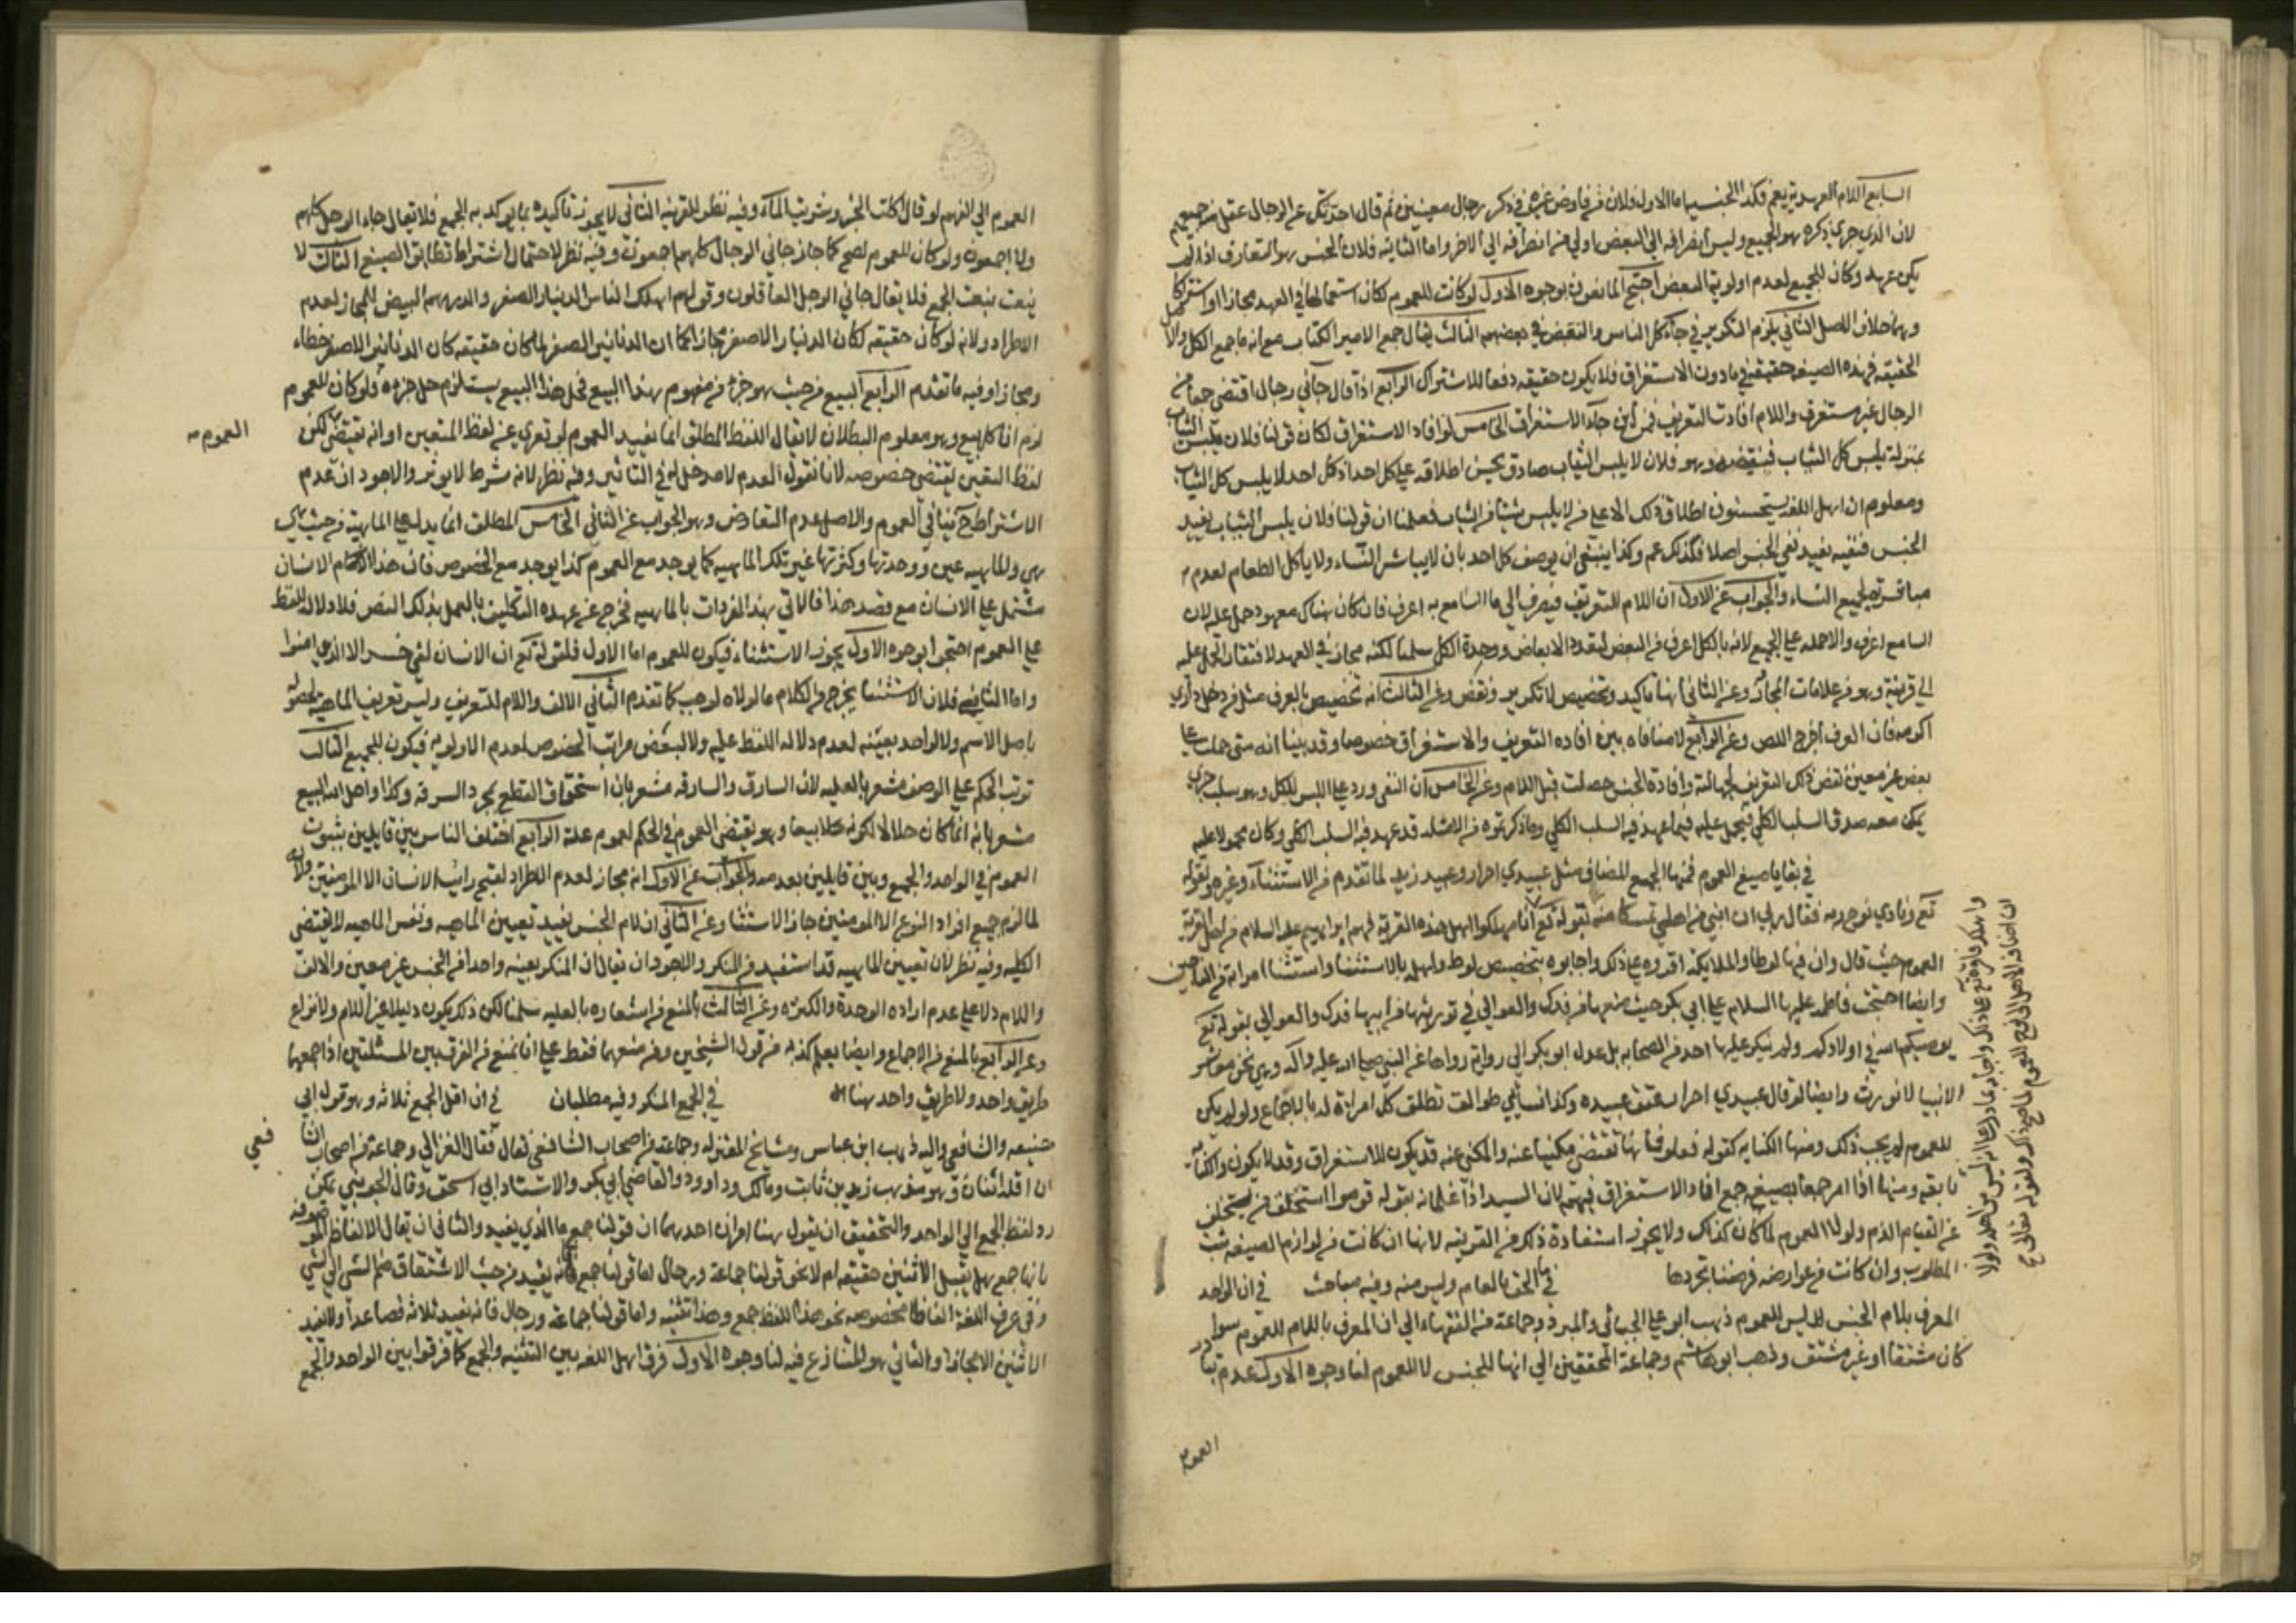 السابع اللام العهدية يعم فكذا الجنسية اما الاول فلان من فاوض غيره في ذكر رجال معينين ثم قال احدثك عن الرجال عقل منه جميعهم
لان الذي جري ذكره هو الجميع وليس انصرافه الي البعض اولي من انصرافه الي الاخر واما الثانية فلان الجنس هو المتعارف اذا لم
يكن عهد وكان للجميع لعدم اولوية البعض احتج المانعون بوجوه الاول لو كانت للعموم لكان استعمالها في العهد مجازا او اشتركا
وهما خلاف الاصل الثاني يلزم التكرير في جآء كل الناس والنقض في بعضهم الثالث يقال جمع الامير الكتاب مع انه ما جمع الكل والاصل
الحقيقة فهذه الصيغة حقيقة في ما دون الاستغراق فلا يكون حقيقه دفعا للاشتراك الرابع اذا قال جآني رجال اقتضي جمعا من
الرجال غير مستغرق واللام افادت التعريف فمن اين جآء الاستغراق الخامس لو افاد الاستغراق لكان قولنا فلان يلبس الثياب
بمنزلة يلبس كل الثياب فنقيضه وهو فلان لا يلبس الثياب صادق يحسن اطلاقه علي كل احد اذ كل احد لا يلبس كل الثياب
ومعلوم ان اهل اللغة يستحسنون اطلاق ذلك الا علي من لا يلبس شيئا من الثياب فعلمنا ان قولنا فلان يلبس الثياب يفيد
الجنس فنفيه يفيد نفي الجنس اصلا فلذلك عم وكذا ينبغي ان يوصف كل احد بان لا يباشر النسآء ولا ياكل الطعام لعدم
مباشرته لجميع النساء والجواب عن الاول ان اللام للتعريف فيصرف الي ما السامع به اعرف فان كان هناك معهود حمل عليه لان
السامع اعرف والا حمله علي الجميع لانه بالكل اعرف من البعض لتعدد الابعاض ووحدة الكل سلمنا لكنه مجاز في العهد لافتقار الحمل عليه
الي قرينة وهو من علامات المجاز وعن الثاني انهما تاكيد وتخصيص لا تكرير ونقض وعن الثالث انه تخصيص بالعرف مثل من دخل داري
اكرمه فان العرف اخرج اللص وعن الرابع لا منافاه بين افاده التعريف والاستغراق خصوصا وقد بينا انه متي حملت علي
بعض غير معين نقض ذلك التعريف لجهالته وافادة الجنس حصلت قبل اللام وعن الخامس ان النفي ورد علي اللبس للكل وهو سلب جزي
يمكن معه صدق السلب الكلي فيحمل عليه فيما عهد فيه السلب الكلي وما ذكرتموه من الامثله قد عهد فيه السلب الكلي وكان محمولا عليه
في بقايا صيغ العموم فمنها الجمع المضاف مثل عبيدي احرار وعبيد زيد لما تقدم من الاستثنآء وغيره ولقوله
تع ونادي نوح ربه فقال رب ان ابني من اهلي تمسكا منه لقوله تع انا مهلكوا اهل هذه القرية فهم ابراهيم عليه السلام من اهل القرية
العموم حيث قال وان فيها لوطا والملايكة اقروه علي ذلك واجابوه بتخصيص لوط واهله بالاستثنا واستثنا امراته من الناجين
وايضا احتجت فاطمه عليها السلام علي ابي بكر حيث منعها من فدك والعوالي في توريثها من ابيها فدك والعوالي بقوله تع
يوصيكم الله في اولادكم ولم ينكر عليها احد من الصحابه بل عدل ابو بكر الي رواية رواها عن النبي صلي الله عليه وآله وهي نحن معاشر
الانبيا لا نورث وايضا لو قال عبيدي احرار عتق عبيده وكذا نسائي طوالق تطلق كل امراة له بالاجماع ولو لم يكن
للعموم لم يجب ذلك ومنها الكنايه كقوله فعلوا فانها تقتضي مكنيا عنه والمكني عنه قد يكون للاستغراق وقد لا يكون والكناية
تابعة ومنها اذا امر جمعا بصيغه جمع افاد الاستغراق فيهم لان السيد اذا امر غلمانه بقوله قوموا استحق من تخلف
عن القيام الذم ولولا العموم لما كان كذلك ولا يجوز استفادة ذلك من القرينه لانها ان كانت من لوازم الصيغه ثبت
المطلوب وان كانت من عوارضه فرضنا تجردها في ما الحق بالعام وليس منه وفيه مباحث في ان الواحد
المعرف بلام الجنس ليس للعموم ذهب ابو علي الجبائي والمبرد وجماعة من الفقهاء الي ان المعرف باللام للعموم سوا
كان مشتقا او غير مشتق وذهب ابو هاشم وجماعة المحققين الي انها للجنس لا للعموم لنا وجوه الاول عدم تبادر
العموم
العموم الي الفهم لو قال اكلت الخبز وشربت المآء وفيه نظر للقرينة الثاني لا يجوز تاكيده بما يوكد به الجمع فلا يقال جاء الرجل كلهم
ولا اجمعون ولو كان للعموم لصح كما جاز جاني الرجال كلهم اجمعون وفيه نظر لاحتمال اشتراط تطابق الصيغ الثالث لا
ينعت بنعت الجمع فلا يقال جاني الرجل العاقلون وقولهم اهلك الناس الدينار الصفر والدرهم البيض للمجاز لعدم
الاطراد ولانه لو كان حقيقه لكان الدينار الاصفر مجازا كما ان الدنانير الصفر لما كان حقيقه كان الدنانير الاصفر خطاء
ومجازا وفيه ما تقدم الرابع البيع من حيث هو جزء من مفهوم هذا البيع فحل هذا البيع يستلزم حل جزءه ولو كان للعموم
لزم اباحة كل بيع وهو معلوم البطلان لا يقال اللفظ المطلق انما يفيد العموم لو تعري عن لفظ التعيين او انه يقتضي لكن
العموم
لفظ التعيين يقتضي خصوصه لانا نقول العدم لا مدخل له في التاثير وفيه نظر لانه شرط لا يوثر والاجود ان عدم
الاشتراط ح ينافي العموم والاصل عدم التعارض وهو الجواب عن الثاني الخامس المطلق انما يدل علي الماهية من حيث هي
هي والماهيه عين ووحدتها وكثرتها غير تلك الماهيه كما يوجد مع العموم كذا يوجد مع الخصوص فان هذا الانسان
مشتمل علي الانسان مع قيد هذا فالاتي بهذا الفردات بالماهيه فخرج عن عهده التكليف بالعمل بذلك النص فلا دلالة للفظ
علي العموم احتجوا بوجوه الاول يجوز الاستثناء فيكون للعموم اما الاول فلقوله تع ان الانسان لفي خسر الا الذين امنوا
واما الثاني فلان الاستثنا يخرج من الكلام ما لولاه لوجب كما تقدم الثاني الالف واللام للتعريف وليس تعريف الماهية لحصوله
باصل الاسم ولا لواحد بعينه لعدم دلاله اللفظ عليه ولا لبعض مراتب الخصوص لعدم الاولويه فيكون للجميع الثالث
ترتب الحكم علي الوصف مشعر بالعليه لان السارق والسارقه مشعر بان استحقاق القطع بمجرد السرقه وكذا واحل الله البيع
مشعر بانه انما كان حلالا لكونه بيعا وهو يقتضي العموم في الحكم لعموم علته الرابع اختلف الناس بين قايلين بثبوت
العموم في الواحد والجمع وبين قايلين بعدمه والجواب عن الاول انه مجاز لعدم الاطراد لقبح رايت الانسان الا المومنين ولانه
لما لزم جميع افراد النوع الا المومنين جاز الاستثنا وعن الثاني ان لام الجنس يفيد تعيين الماهيه ونفس الماهيه لا يقتضي
الكليه وفيه نظر لان تعيين الماهيه قد استفيد من المنكر والاجود ان يقال ان المنكر يعينه واحدا من الجنس غير معين والالف
واللام دلا علي عدم اراده الوحدة والكثره وعن الثالث بالمنع من اشعاره بالعليه سلمنا لكن ذلك يكون دليلا غير اللام ولا نزاع
وعن الرابع بالمنع من الاجماع وايضا يعلم كذبه من قول الشيخين ومن منعهما فقط علي انا نمنع من الفرق بين المسئلتين اذا جمعهما
طريق واحد ولا طريق واحد هنا في الجمع المنكر وفيه مطلبان في ان اقل الجمع ثلاثه وهو قول ابي
حنيفه والشافعي واليه ذهب ابن عباس ومشايخ المعتزله وجماعة من اصحاب الشافعي وقال الغزالي وجماعة من اصحاب الشا
فعي
ان اقله اثنان وهو مذهب زيد بن ثابت ومالك وداوود والقاضي ابي بكر والاستاد ابي اسحق وقال الجويني يمكن
رد لفظ الجمع الي الواحد والتحقيق ان يقول هنا امران احدهما ان قولنا جمع ما الذي يفيد والثاني ان يقال الالفاظ الموصوفه
بانها جمع هل يقبل الاثنين حقيقه ام لا نحو قولنا جماعة ورجال اما قولنا جمع فانه يفيد من حيث الاشتقاق ضم الشي الي الشي
وفي عرف اللغة الفاظا مخصوصه نحو هذا اللفظ جمع وهذا تثنيه واما قولنا جماعه ورجال فانه يفيد ثلاثه فصاعدا ولا يفيد
الاثنين الا مجازا والثاني هو المتنازع فيه لنا وجوه الاول فرق اهل اللغه بين التثنيه والجمع كما فرقوا بين الواحد والجمع